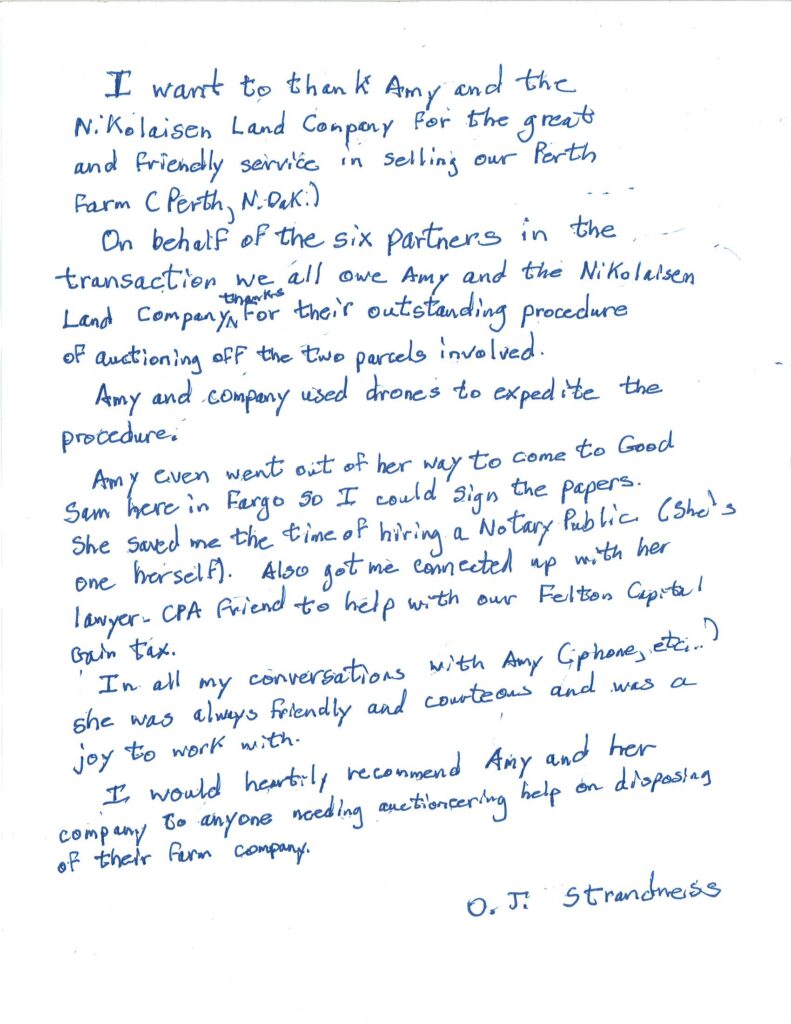 I want to thank Amy and the
Nikolaisen Land Company for the great
and friendly service in selling our Perth
Farm (Perth, N. Dak.)
On behalf of the six partners in the
transaction we all owe Amy and the Nikolaisen
Land Company, thanks for their outstanding procedure
of auctioning off the two parcels involved.
Amy and company used drones to expedite the
procedure.
Amy even went out of her way to come to Good
Sam here in Fargo so I could sign the papers.
She saved me the time of hiring a Notary Public (She's
one herself). Also got me connected up with her
lawyer- CPA friend to help with our Felton Capital
Gain tax.
In all my conversations with Amy (phone, etc..)
she was always friendly and courteous and was a
joy to work with.
I would heartily recommend Amy and her
company to anyone needing auctioneering help on disposing
of their farm company.
O. J. Strandness